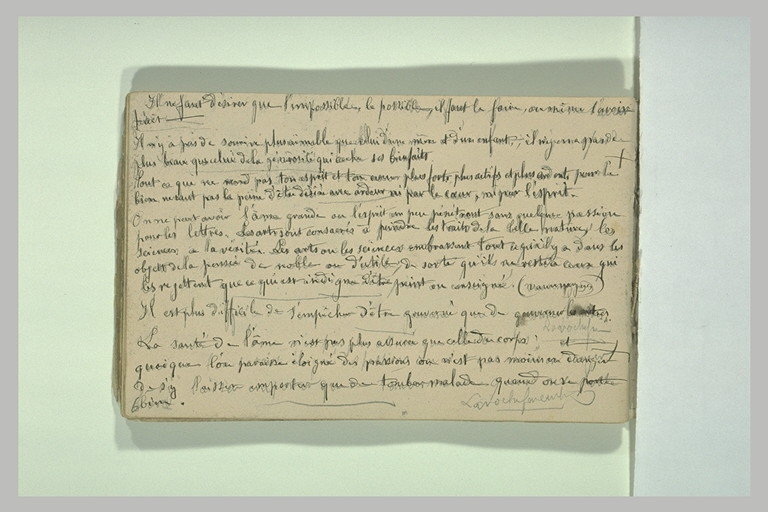 Il ne faut désirer que l'impossible, le possible, il faut le faire, ou mieux l'avoir
fait
Il n'y a pas de sourire plus aimable que celui d'une mère et d'un enfant, il n'y en a pas de
plus beau que celui de la générosité qui cache ses bienfaits
Tout ce qui ne rend pas ton esprit et ton cœur plus forts plus actifs et plus ardents pour le
bien ne vaut pas la peine d'être désiré avec ardeur ni par le cœur, ni par l'esprit.
On ne peut avoir l'âme grande ou l'esprit un peu pénétrant sans quelque passion
pour les lettres. Les arts sont consacrés à peindre les traits de la belle nature, les
sciences à la vérité. Les arts ou les sciences embrassent tout ce qu'il y a dans les
objets de la pensée de noble ou d'utile, de sorte qu'il ne reste à ceux qui
les rejettent que ce qui est indigne d'être peint ou enseigné. (Vauvenargues)
Il est plus difficile de s'empêcher d'être gouverné que de gouverner les autres.
Larochefou
La santé de l'âme n'est pas plus assurée que celle du corps, et
quoique l'on paraisse éloigné des passions on n'est pas moins en danger
de s'y laisser emporter que de tomber malade quand on se porte
bien.
Larochefoucauld